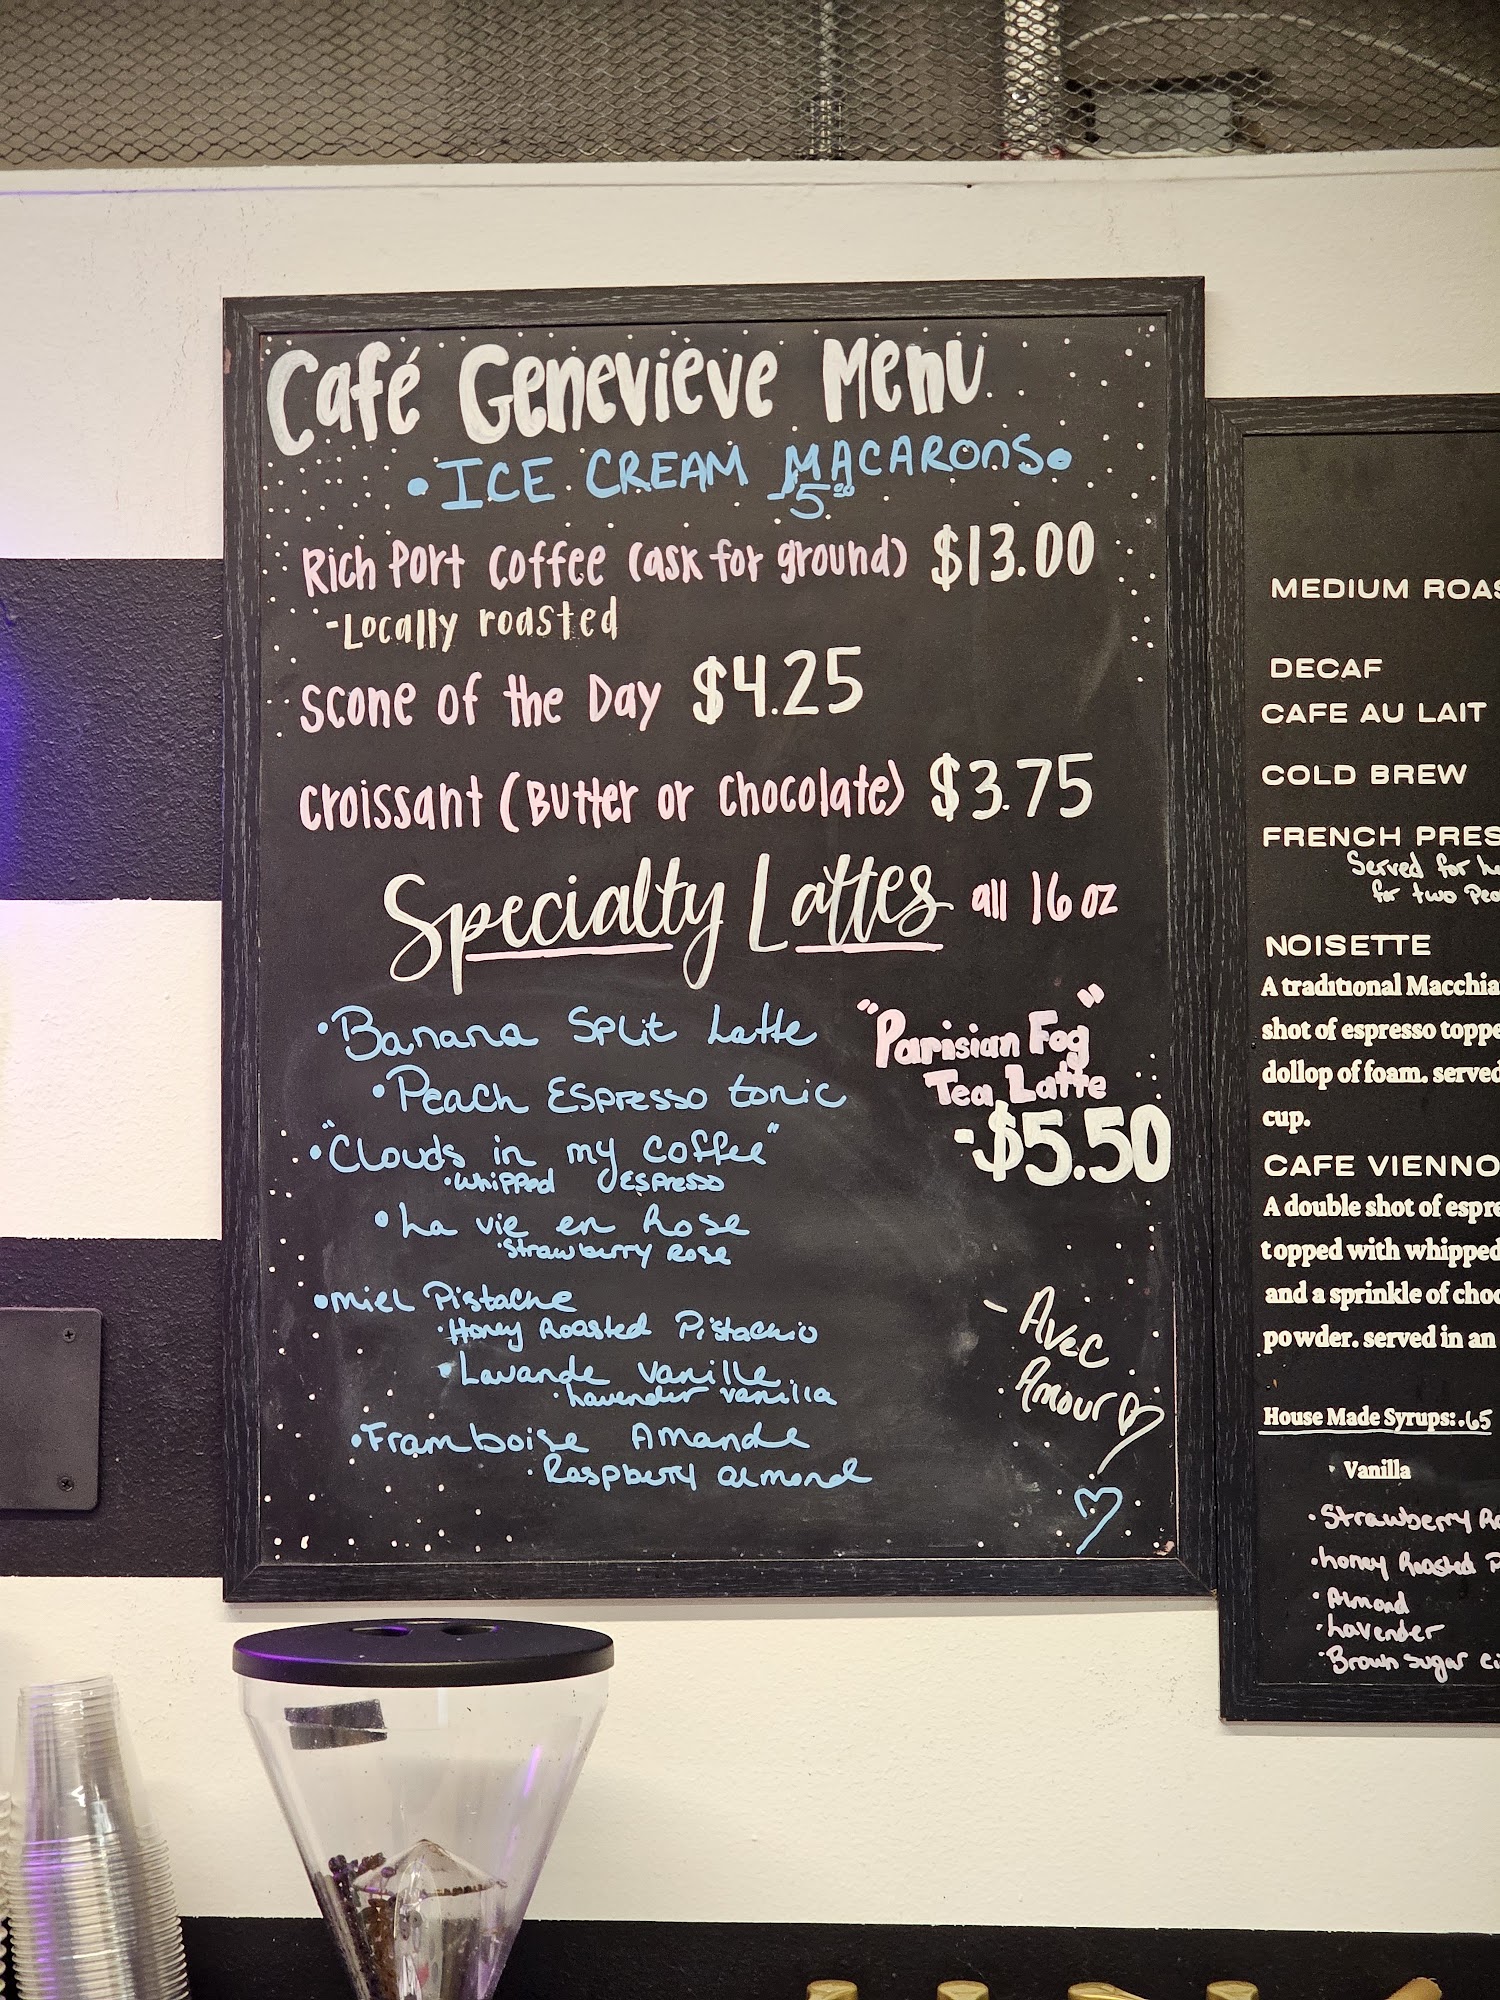 Café Genevieve Menu
• ICE CREAM MACARONS •
5.00
Rich Port Coffee (ask for ground) $13.00
-Locally roasted
Scone of the Day $4.25
Croissant (Butter or Chocolate) $3.75
Specialty Lattes all 16 oz
• Banana Split Latte
• Peach Espresso tonic
• "Clouds in my coffee"
• whipped espresso
• La vie en Rose
• Strawberry Rose
• Miel Pistache
• Honey Roasted Pistachio
• Lavande Vanille
• Lavender vanilla
• Framboise Amande
• Raspberry almond
"Parisian Fog"
Tea Latte
-$5.50
- Avec
Amour
MEDIUM ROAS
DECAF
CAFE AU LAIT
COLD BREW
FRENCH PRES
Served for
for two Peo
NOISETTE
A traditional Macchia
shot of espresso toppe
dollop of foam. served
cup.
CAFE VIENNO
A double shot of espre
topped with whipped
and a sprinkle of choc
powder. served in an
House Made Syrups: .65
• Vanilla
• Strawberry Ro
• honey Roasted P
• Almond
• Lavender
• Brown sugar ci